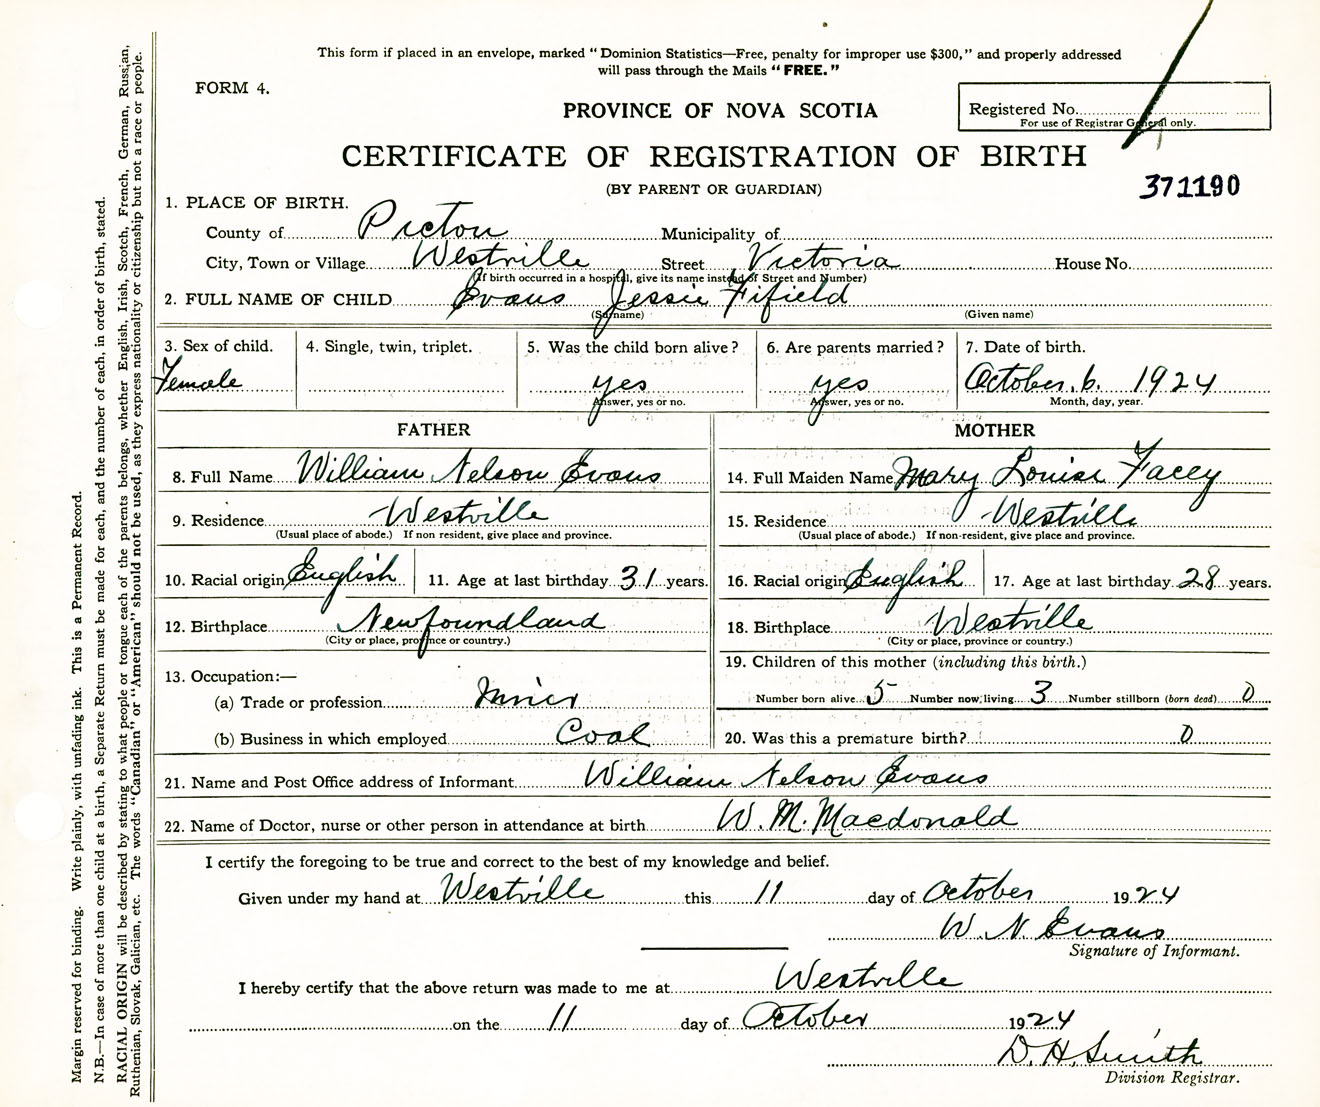 This form if placed in an envelope, marked "Dominion Statistics—Free, penalty for improper use $300," and properly addressed
will pass through the Mails "FREE."
FORM 4.
PROVINCE OF NOVA SCOTIA
Registered No.
For use of Registrar General only.
CERTIFICATE OF REGISTRATION OF BIRTH
(BY PARENT OR GUARDIAN)
371190
1. PLACE OF BIRTH.
County of Pictou Municipality of
City, Town or Village Westville Street Victoria House No.
(If birth occurred in a hospital, give its name instead of Street and Number)
2. FULL NAME OF CHILD Evans Jessie Fifield
(Surname) (Given name)
3. Sex of child. 4. Single, twin, triplet. 5. Was the child born alive? 6. Are parents married? 7. Date of birth.
Female yes yes October 6. 1924
Answer, yes or no. Answer, yes or no. Month, day, year.
FATHER MOTHER
8. Full Name William Nelson Evans 14. Full Maiden Name Mary Louise Facey
9. Residence Westville 15. Residence Westville
(Usual place of abode.) If non resident, give place and province. (Usual place of abode.) If non-resident, give place and province.
10. Racial origin English 11. Age at last birthday 31 years. 16. Racial origin English 17. Age at last birthday 28 years.
12. Birthplace Newfoundland 18. Birthplace Westville
(City or place, province or country.) (City or place, province or country.)
13. Occupation:— 19. Children of this mother (including this birth.)
(a) Trade or profession Miner Number born alive 5 Number now living 3 Number stillborn (born dead) 0
(b) Business in which employed Coal 20. Was this a premature birth? 0
21. Name and Post Office address of Informant William Nelson Evans
22. Name of Doctor, nurse or other person in attendance at birth W. M. Macdonald
I certify the foregoing to be true and correct to the best of my knowledge and belief.
Given under my hand at Westville this 11 day of October 1924
W. N. Evans
Signature of Informant.
I hereby certify that the above return was made to me at Westville
on the 11 day of October 1924
D. H. Smith
Division Registrar.
Margin reserved for binding. Write plainly, with unfading ink. This is a Permanent Record.
N.B.—In case of more than one child at a birth, a Separate Return must be made for each, and the number of each, in order of birth, stated.
RACIAL ORIGIN will be described by stating to what people or tongue each of the parents belongs, whether English, Irish, Scotch, French, German, Russian,
Ruthenian, Slovak, Galician, etc. The words "Canadian" or "American" should not be used, as they express nationality or citizenship but not a race or people.